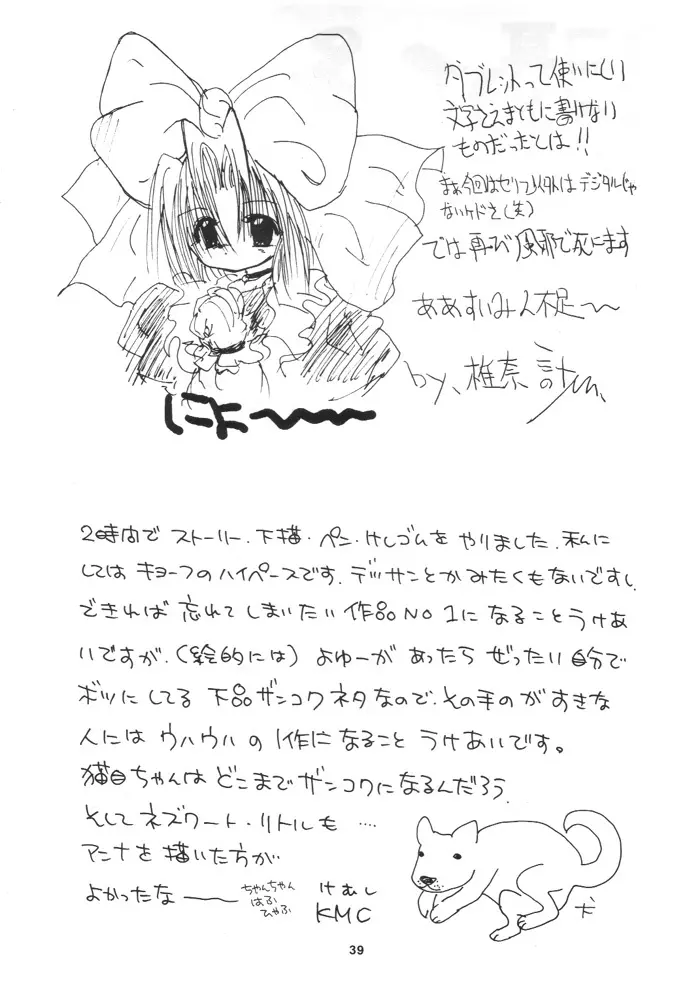 タブレットって使いにくい
文字さえまともに書けない
ものだったとは!!
まぁ今回はセリフ以外はデジタルじゃ
ないケドさ(笑)
では再び風邪で死にます
ああすいみん不足〜〜
by、椎奈
にょ〜〜〜〜
2時間でストーリー、下描・ペン・けしゴムをやりました。私に
してはキョーフのハイペースです。デッサンとかみたくもないですし、
できれば忘れてしまいたい作品NO1になることうけあ
いですが、(絵的には)よゆーがあったらぜったい自分で
ボツにしてる下品ザンコクネタなので、その手のがすきな
人にはウハウハの1作になることうけあいです。
猫目ちゃんはどこまでザンコクになるんだろう。
そしてネズワート・リトルも‥‥
アンナを描いた方が
よかったな〜〜
ちゃんちゃん
はふ
ひゃふ
けむし
KMC
犬
39